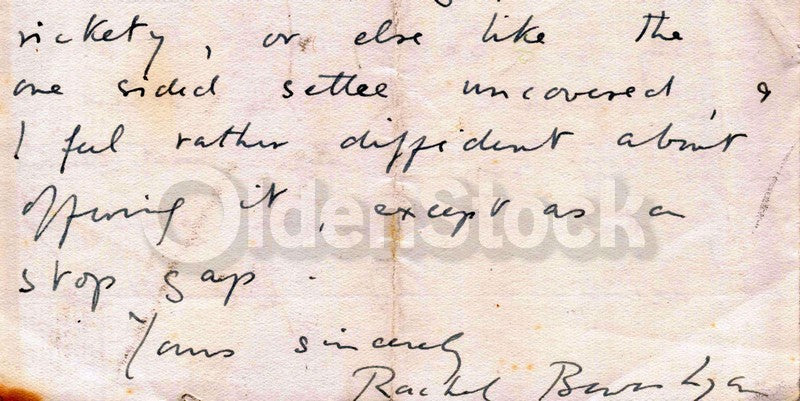 rickety, or else like the
one sided settee uncovered, &
I feel rather diffident about
offering it, except as a
stop gap.
Yours sincerely
Rachel
OldenStock